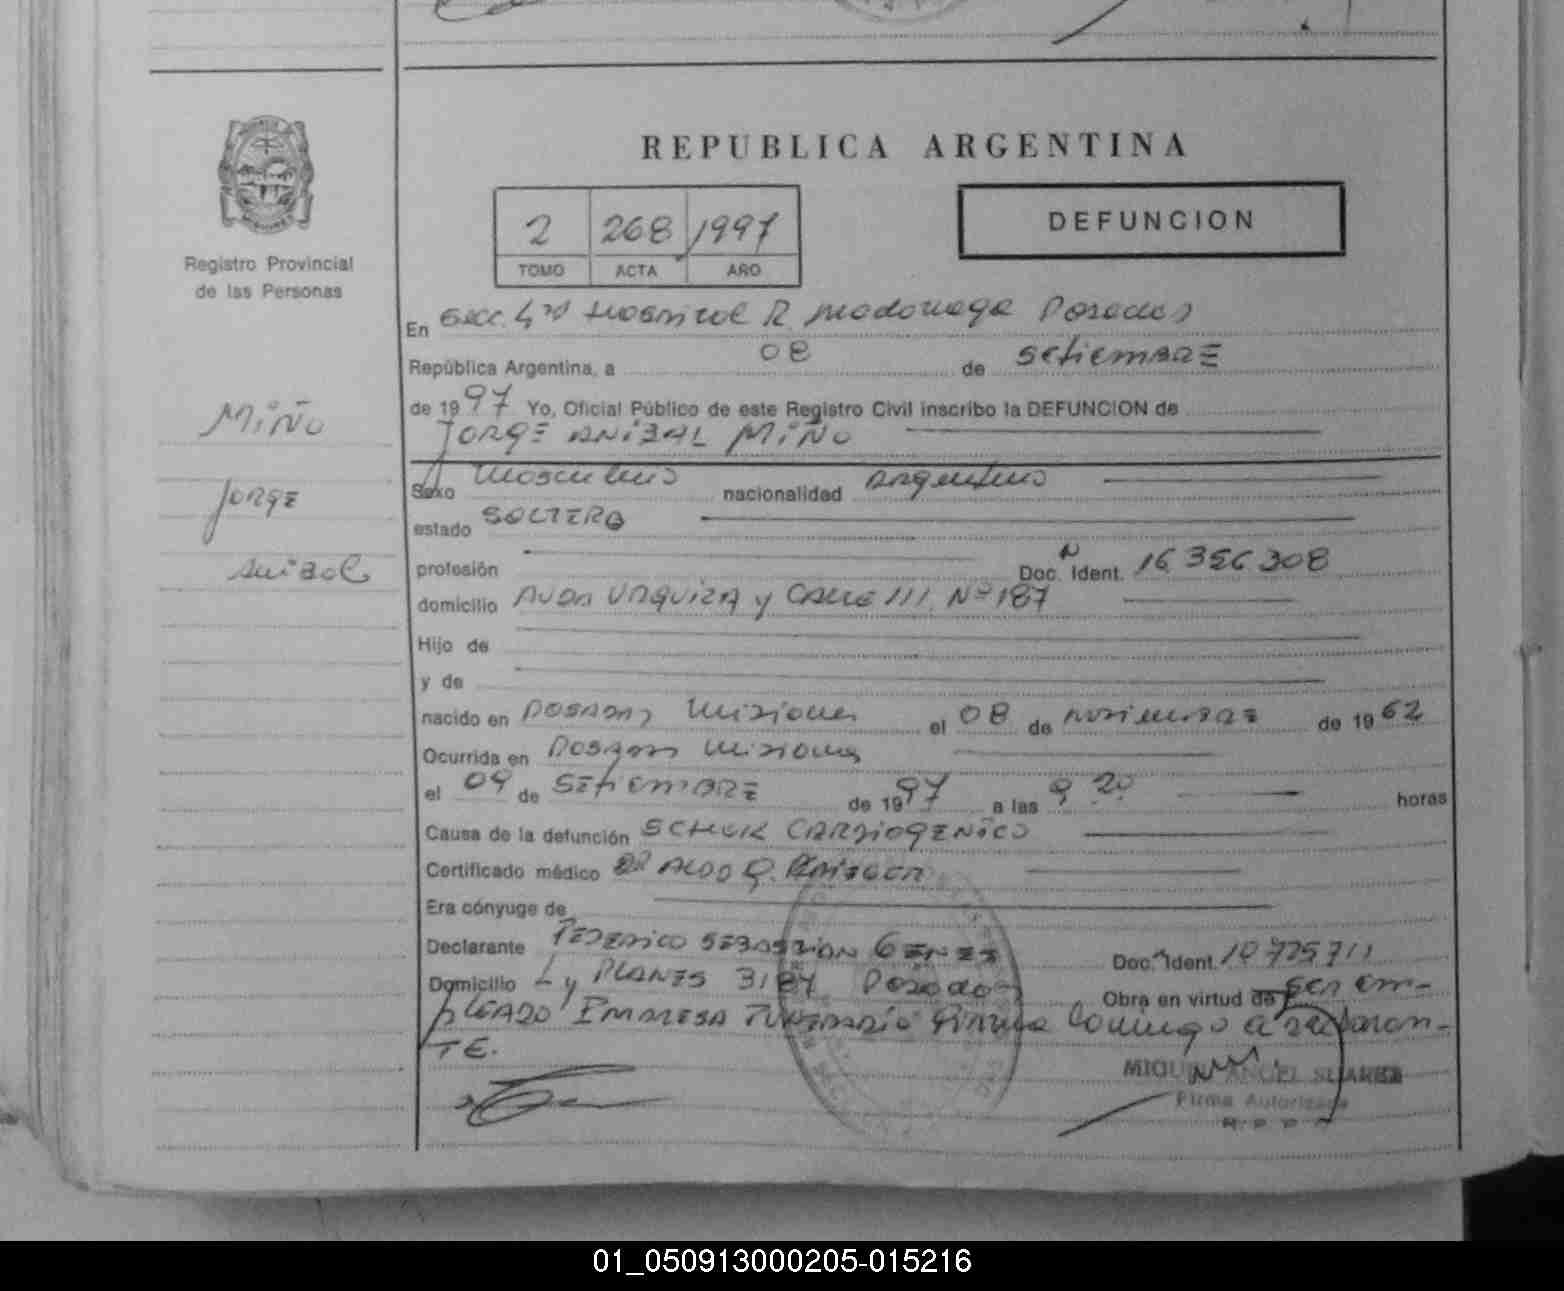 REPUBLICA ARGENTINA
Registro Provincial
de las Personas
2 268 1997
TOMO ACTA AÑO
DEFUNCION
En Secc. 4ta Hospital R. Madariaga Posadas
República Argentina, a 08 de Setiembre
de 1997 Yo, Oficial Público de este Registro Civil inscribo la DEFUNCION de
JORGE ANIBAL MIÑO
MIÑO
JORGE
ANIBAL
Sexo masculino nacionalidad argentino
estado SOLTERO
profesión Doc. Ident. 16 356 308
domicilio AVDA URQUIZA y CALLE 111 Nº 187
Hijo de
y de
nacido en POSADAS Misiones el 08 de noviembre de 1962
Ocurrida en Posadas Misiones
el 04 de SETIEMBRE de 1997 a las 9 20 horas
Causa de la defunción SCHOK CARDIOGENICO
Certificado médico Dr ALDO
Era cónyuge de
Declarante FEDERICO SEBASTIAN GENES Doc. Ident. 10 725 711
Domicilio L y PLANES 3184 Posadas Obra en virtud de ser em-
PLEADO EMPRESA FUNERARIA firma conmigo el declaran-
TE.
MIGUEL ANGEL SUAREZ
Firma Autorizada
01_050913000205-015216